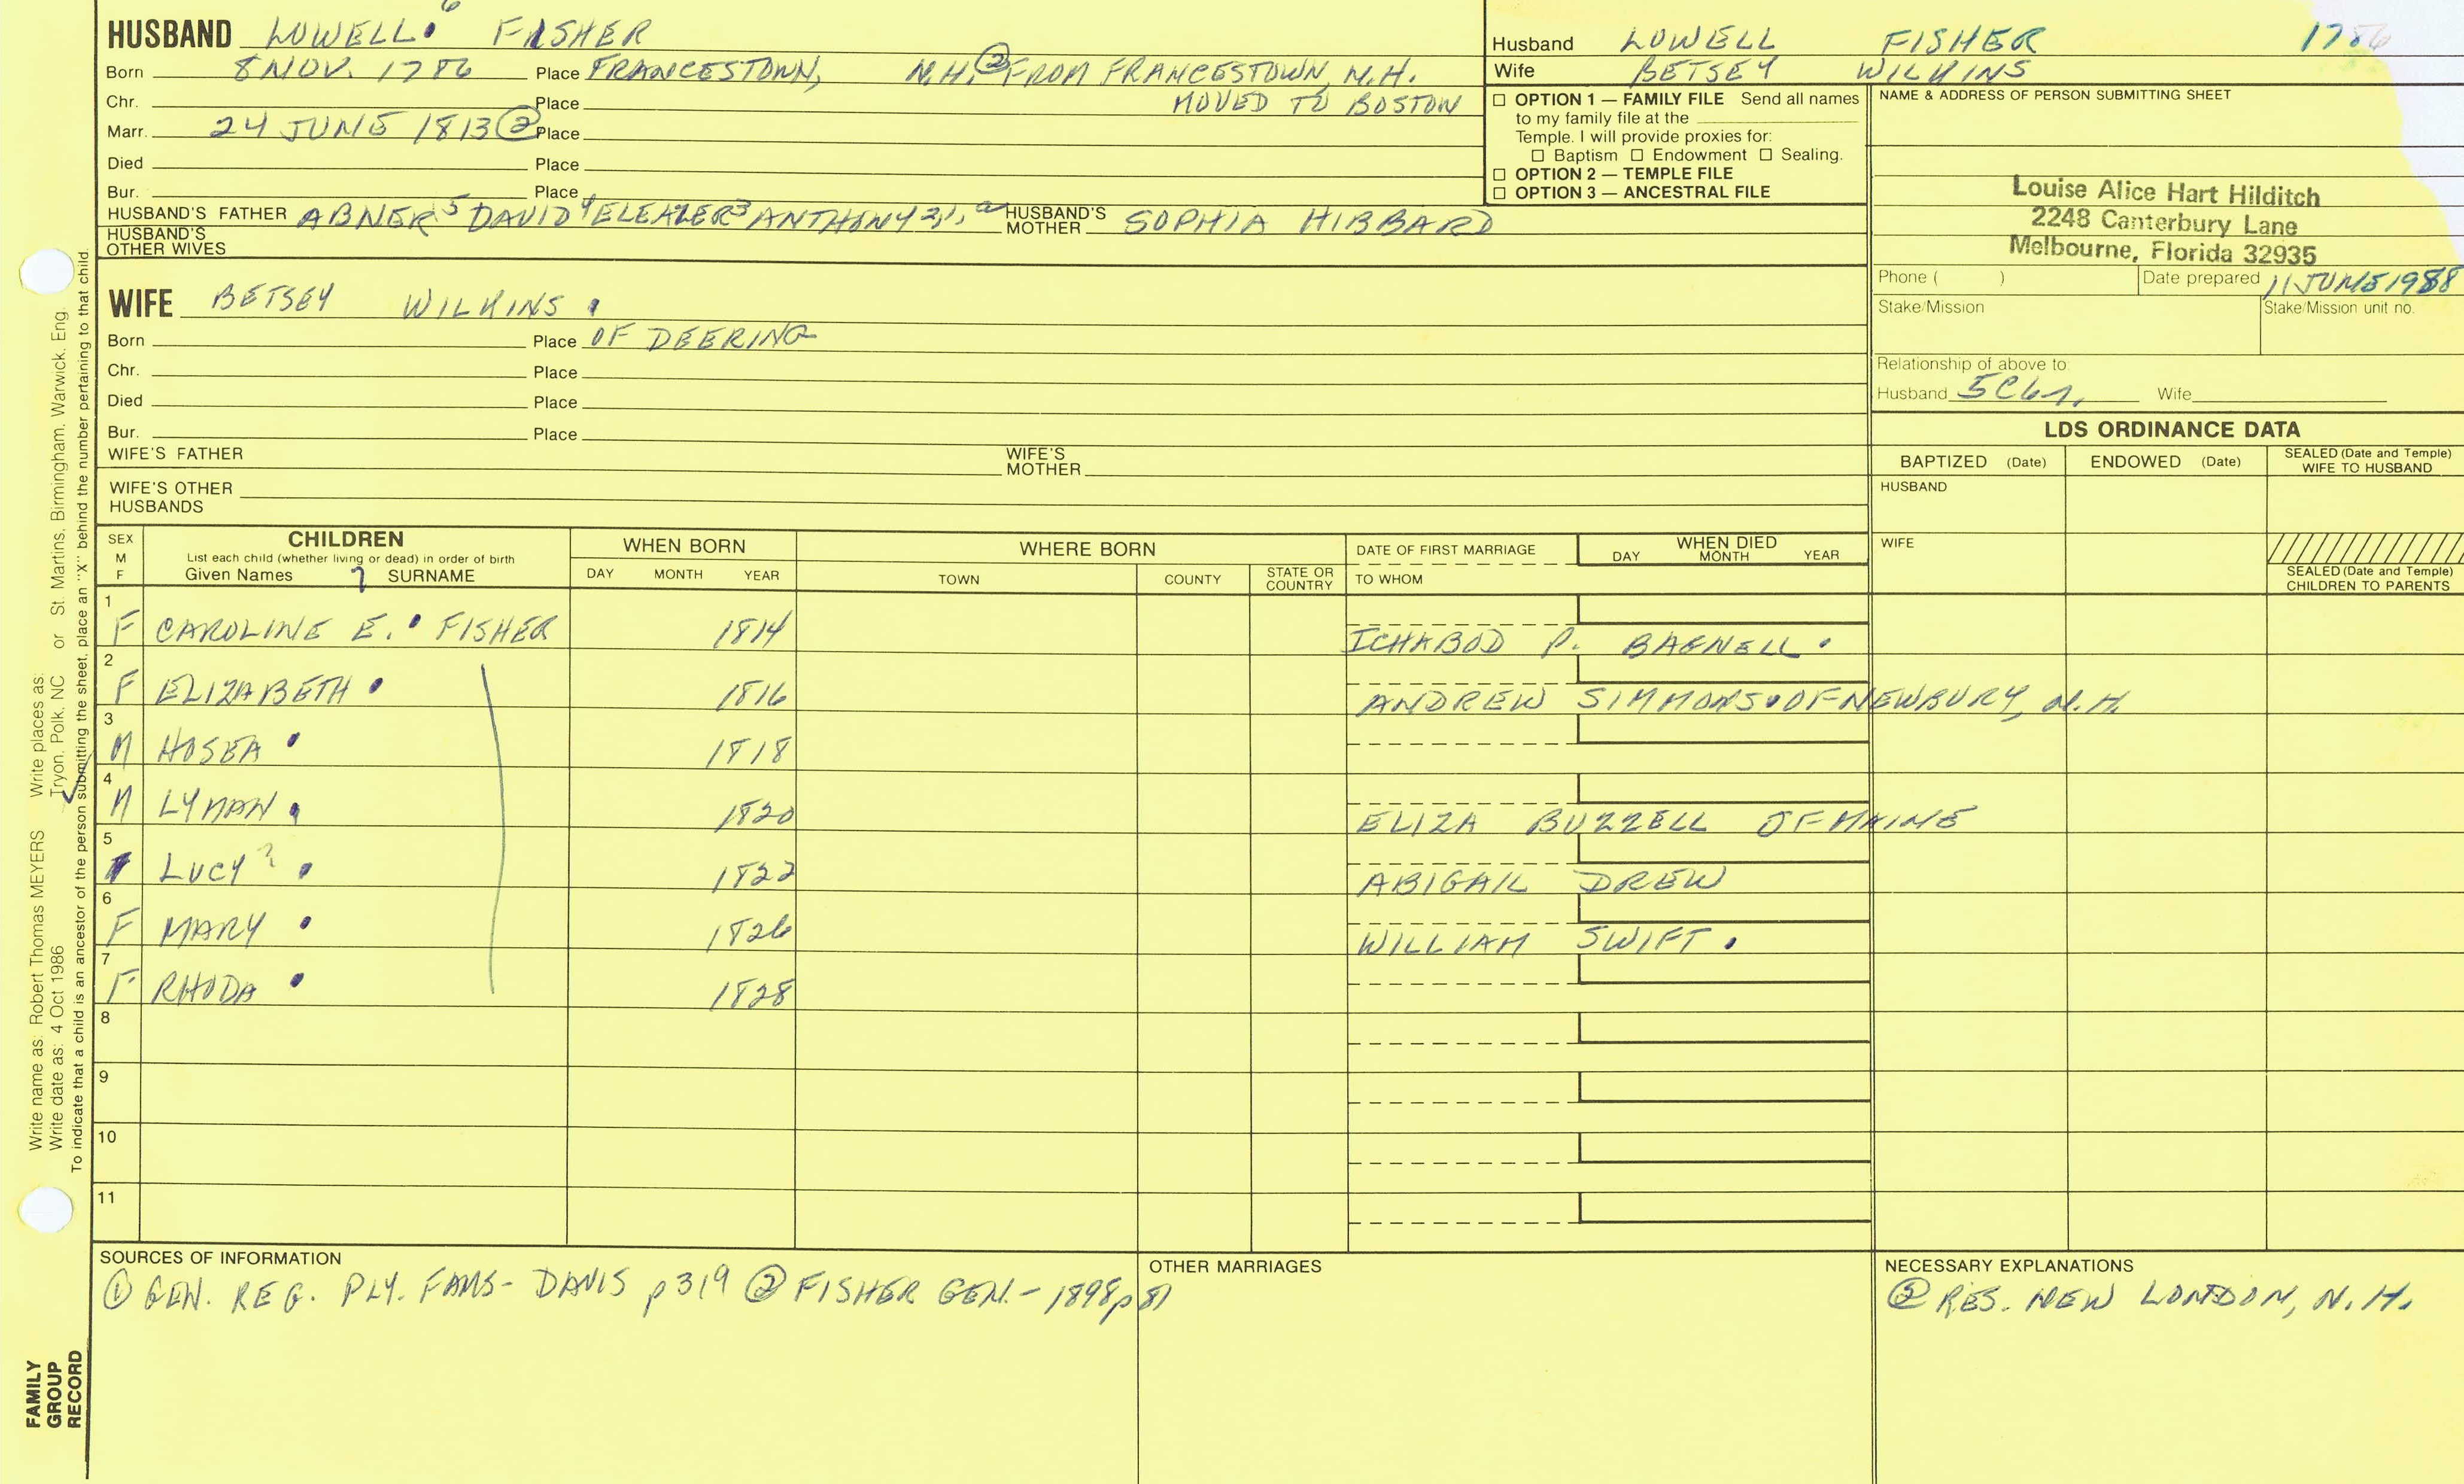 HUSBAND LOWELL 6 FISHER
Born 8 NOV. 1786 Place FRANCESTOWN, N.H. ② FROM FRANCESTOWN, N.H.
Chr. Place MOVED TO BOSTON
Marr. 24 JUNE 1813 ② Place
Died Place
Bur. Place
HUSBAND'S FATHER ABNER 5 DAVID 4 ELEAZER 3 ANTHONY 2, 1, HUSBAND'S MOTHER SOPHIA HIBBARD
HUSBAND'S OTHER WIVES
Husband LOWELL FISHER 1786
Wife BETSEY WILKINS
☐ OPTION 1 — FAMILY FILE Send all names
to my family file at the
Temple. I will provide proxies for:
☐ Baptism ☐ Endowment ☐ Sealing.
☐ OPTION 2 — TEMPLE FILE
☐ OPTION 3 — ANCESTRAL FILE
NAME & ADDRESS OF PERSON SUBMITTING SHEET
Louise Alice Hart Hilditch
2248 Canterbury Lane
Melbourne, Florida 32935
Phone ( ) Date prepared 11 JUNE 1988
Stake/Mission Stake/Mission unit no.
Relationship of above to:
Husband 5C6r, Wife
WIFE BETSEY WILKINS
Born Place OF DEERING
Chr. Place
Died Place
Bur. Place
WIFE'S FATHER WIFE'S MOTHER
WIFE'S OTHER HUSBANDS
LDS ORDINANCE DATA
BAPTIZED (Date) ENDOWED (Date) SEALED (Date and Temple) WIFE TO HUSBAND
HUSBAND
WIFE
SEALED (Date and Temple) CHILDREN TO PARENTS
SEX M F
CHILDREN
List each child (whether living or dead) in order of birth
Given Names 7 SURNAME
WHEN BORN
DAY MONTH YEAR
WHERE BORN
TOWN COUNTY STATE OR COUNTRY
DATE OF FIRST MARRIAGE
TO WHOM
WHEN DIED
DAY MONTH YEAR
1 F CAROLINE E. FISHER 1814 ICHABOD P. BAGNELL
2 F ELIZABETH 1816 ANDREW SIMMONS OF NEWBURY, N.H.
3 M HOSEA 1818
4 M LYMAN 1820 ELIZA BUZZELL OF MAINE
5 LUCY ? 1822 ABIGAIL DREW
6 F MARY 1826 WILLIAM SWIFT
7 F RHODA 1828
8
9
10
11
SOURCES OF INFORMATION
① GEN. REG. PLY. FAMS- DAVIS p319 ② FISHER GEN. - 1898 p 81
OTHER MARRIAGES
NECESSARY EXPLANATIONS
② RES. NEW LONDON, N.H.
Write name as: Robert Thomas MEYERS Write places as: Tryon, Polk, NC or St. Martins, Birmingham, Warwick, Eng.
Write date as: 4 Oct 1986
To indicate that a child is an ancestor of the person submitting the sheet, place an "X" behind the number pertaining to that child.
FAMILY
GROUP
RECORD